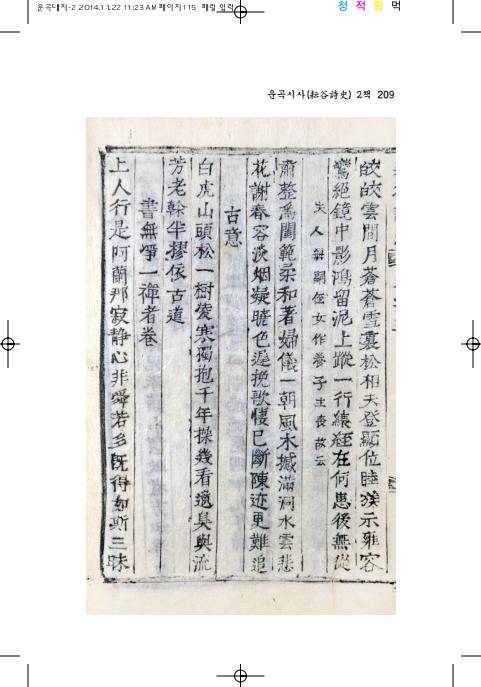 운곡내지-2 2014.11.22 11:23 AM 페이지115 패럴 입력
청 적 황 먹
운곡시사(耘谷詩史) 2책 209
皎皎雲間月蒼蒼雪裏松相夫登顯位睦族示雍容
鸞絕鏡中影鴻留泥上蹤一行縗絰在何患後無從
夫人無嗣侄女作養子主喪故云
肅整爲閨範柔和著婦儀一朝風木撼滿洞水雲悲
花謝春容淡烟凝曉色遲挽歌悽已斷陳迹更難追
古意
白虎山頭松一樹凌寒獨抱千年操幾看遺臭與流
芳老幹半摎依古道
書無爭一禪者卷
上人行是阿蘭那寂静心非舜若多旣得如斯三昧